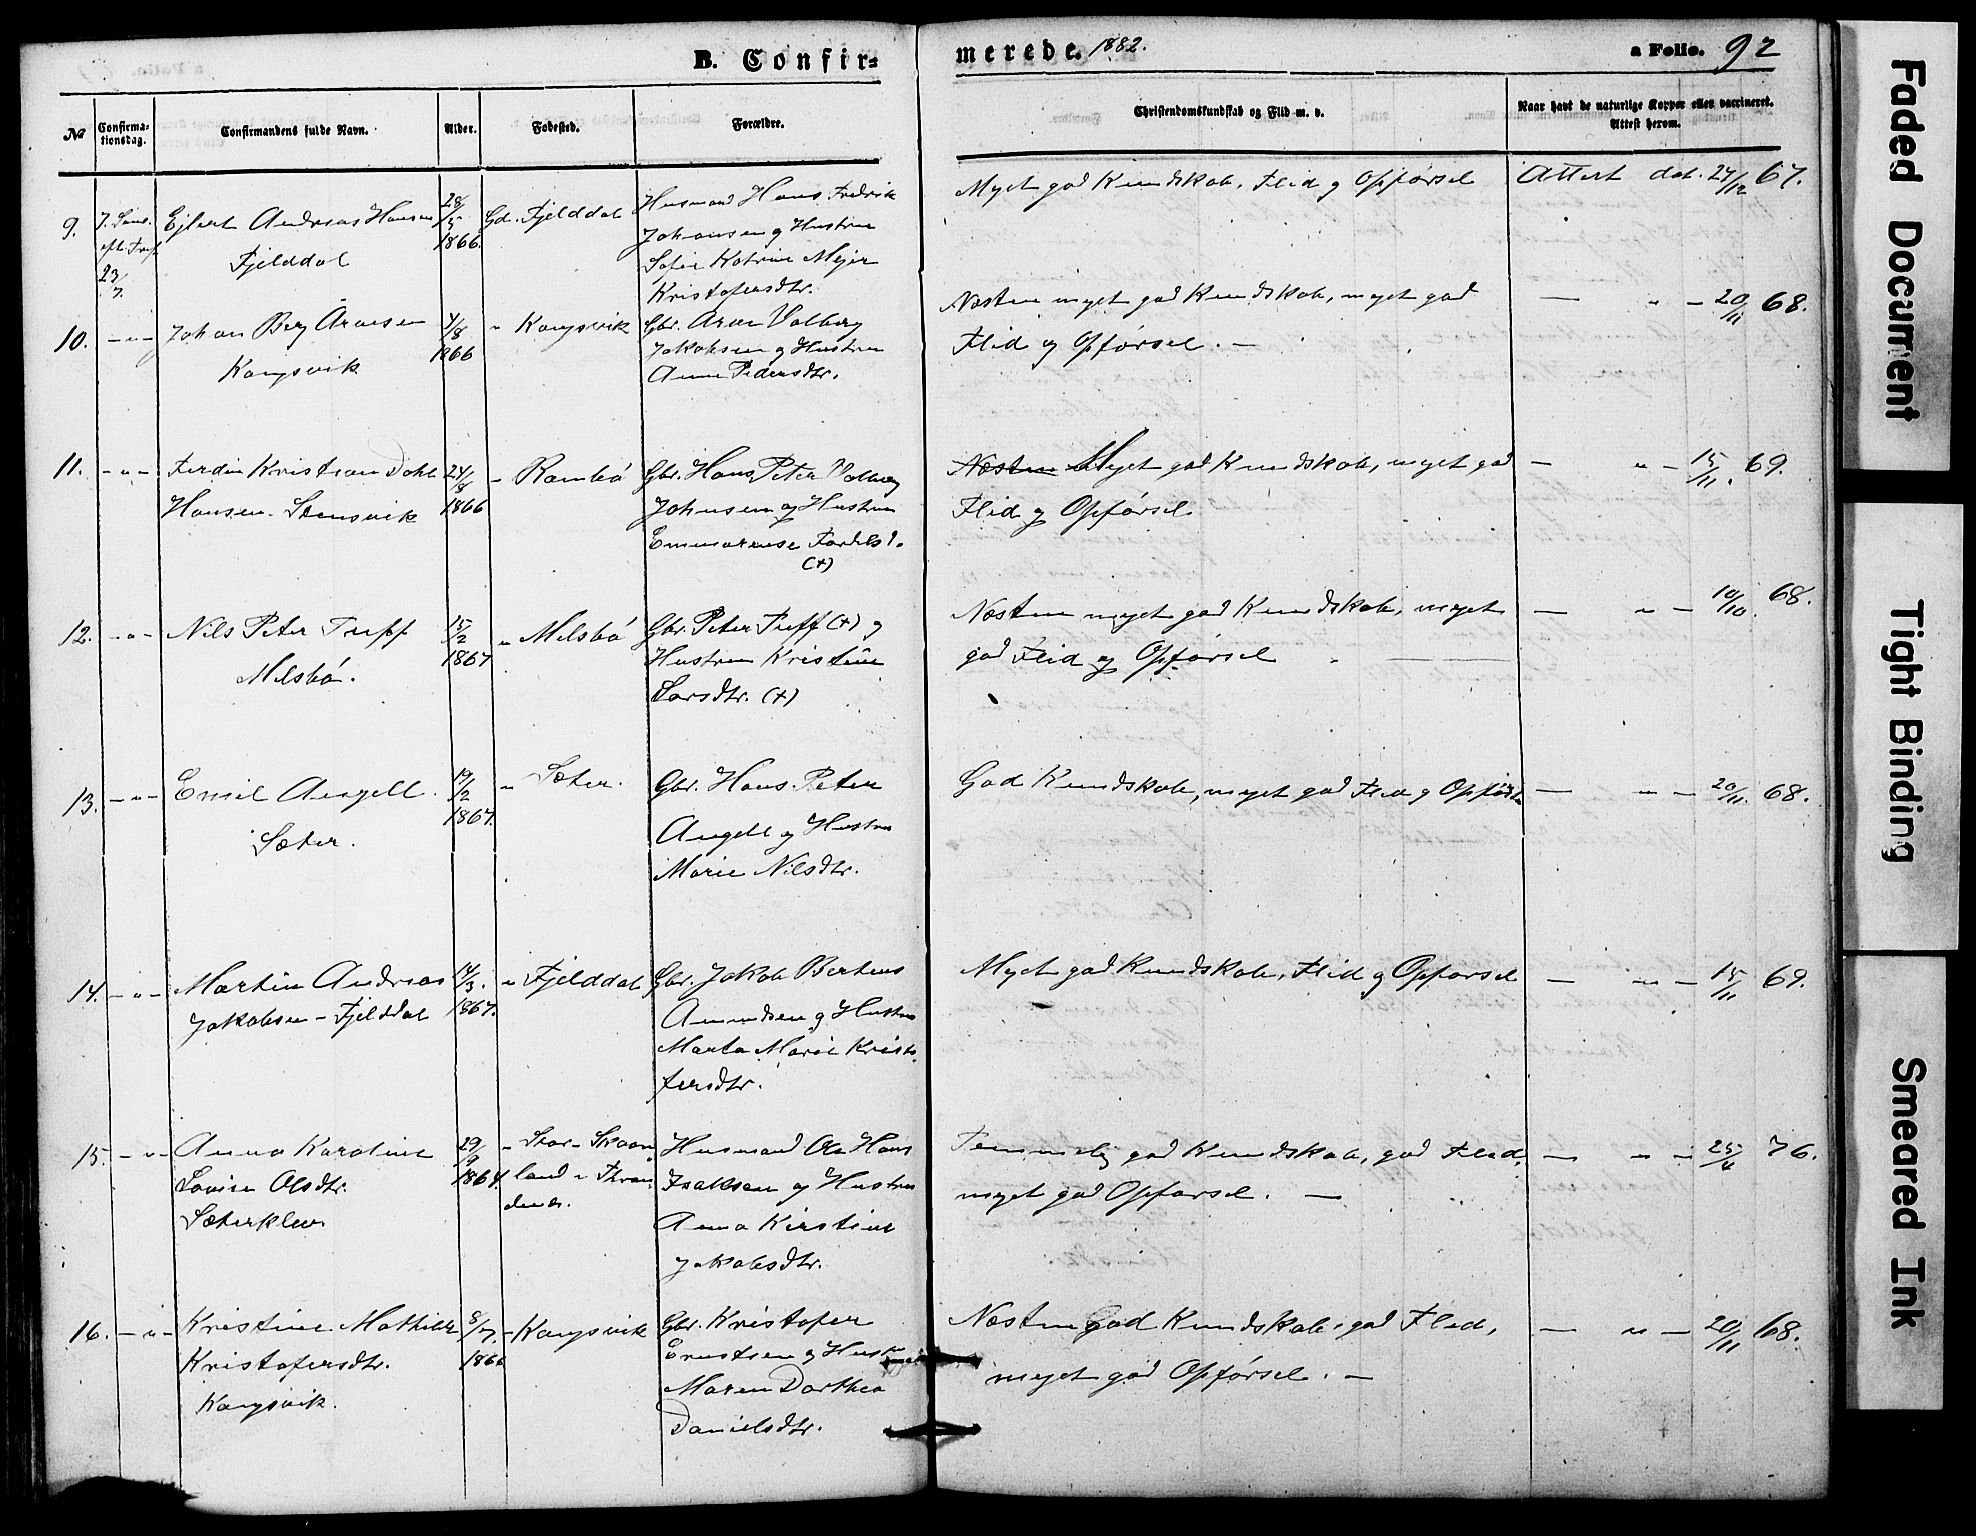 B. Confir=
merede. 1882.
a Folio. 92
No
Confirma=
tionsdag.
Confirmandens fulde Navn.
Alder.
Fødested.
Forældre.
Christendomskundskab og Flid m. v.
Naar havt de naturlige Kopper eller vaccineret.
Attest herom.
9. 7. Sønd.
eft. Tref.
23/7.
Ejlert Andreas Hansen
Fjelddal
28/5
1866.
Gd. Fjelddal
Husmand Hans Fredrik
Johansen og Hustru
Sofie Katrine Mejer
Kristofersdtr.
Myet god Kundskab, Flid og Opførsel
Attest dat. 27/12 67.
10. – " –
Johan Berg Aronsen
Kongsvik
4/8
1866
" Kongsvik
Gbr. Aron Volberg
Jakobsen og Hustru
Anne Pedersdtr.
Næsten myet god Kundskab, myet god
Flid og Opførsel. –
— " – 20/11 68.
11. – " –
Ferdin Kristian Dahl
Hansen - Stensvik
24/8
1866
" Rambø
Gbr. Hans Peter Volberg
Johnsen og Hustru
Emmorense
(+)
Næsten Myet god Kundskab, myet god
Flid og Opførsel.
— " – 15/11. 69.
12. – " –
Nils Peter Tuff
Melsbø.
15/2
1867
" Melsbø
Gbr. Peter Tuff (+) og
Hustru Kristine
Larsdtr. (+)
Næsten myet god Kundskab, myet
god Flid og Opførsel
— " – 10/10. 68.
13. – " –
Emil Angell.
Sæter.
19/2
1867.
" Sæter.
Gbr. Hans Peter
Angell og Hustru
Marie Nilsdtr.
God Kundskab, myet god Flid og Opførsel
— " – 20/11. 68.
14. – " –
Martin Andreas
Jakobsen - Fjelddal
14/3.
1867.
" Fjelddal
Gbr. Jakob Berteus
Amundsen og Hustru
Marta Marie Kristo-
fersdtr.
Myet god Kundskab, Flid og Opførsel
— " – 15/11 69.
15. – " –
Anna Karoline
Lovise Olsdtr.
Sæterklev
29/9
1864.
" Stor-Skaan-
land i Thron-
denæs.
Husmand Ole Hans
Isaksen og Hustru
Anna Kirstine
Jakobsdtr.
Temmelig god Kundskab, god Flid,
myet god Opførsel. –
— " – 25/4 76.
16. – " –
Kristine Mathilde
Kristofersdtr.
Kongsvik.
8/7.
1866
" Kongsvik
Gbr. Kristofer
Ernstsen og Hustru
Maren Dorthea
Danielsdtr.
Næsten god Kundskab, god Flid,
myet god Opførsel. –
— " – 20/11 68.
Faded Document
Tight Binding
Smeared Ink